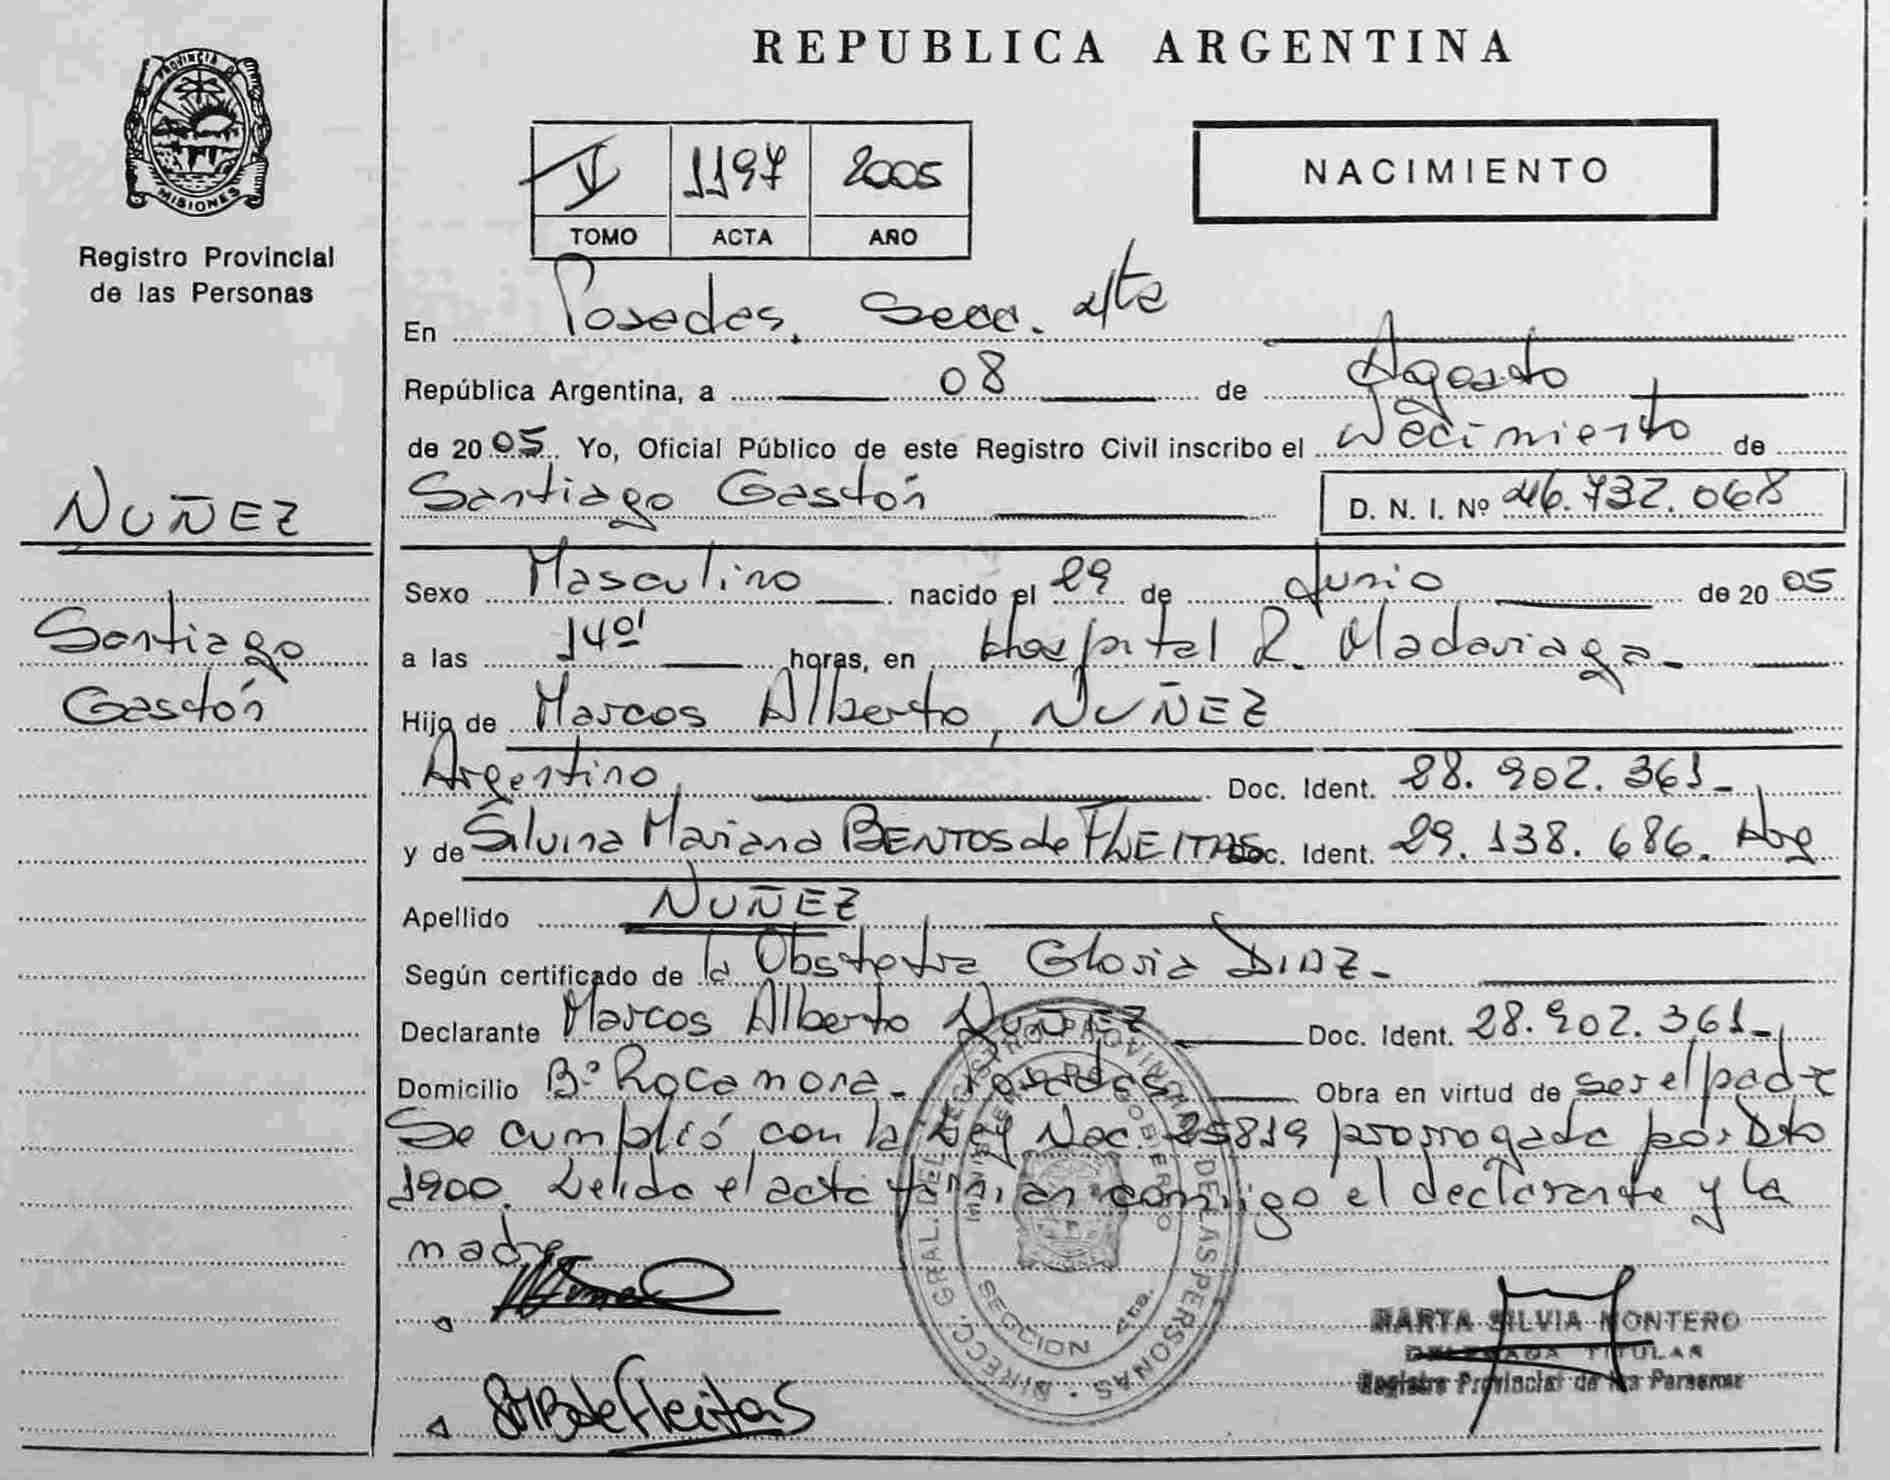 REPUBLICA ARGENTINA
PROVINCIA DE
MISIONES
Registro Provincial
de las Personas
V 1197 2005
TOMO ACTA AÑO
NACIMIENTO
En Posadas, Secc. 4ta
República Argentina, a 08 de Agosto
de 2005 Yo, Oficial Público de este Registro Civil inscribo el Nacimiento de
Santiago Gastón D. N. I. Nº 46.732.068
NUÑEZ
Santiago
Gastón
Sexo Masculino nacido el 29 de Junio de 2005
a las 14º' horas, en Hospital R. Madariaga-
Hijo de Marcos Alberto, NUÑEZ
Argentino, Doc. Ident. 28.902.361-
y de Silvina Mariana BENTOS de FLEITAS Doc. Ident. 29.138.686. Arg
Apellido NUÑEZ
Según certificado de la Obstetra Gloria DIAZ-
Declarante Marcos Alberto NUÑEZ Doc. Ident. 28.902.361-
Domicilio Bº Rocamora- Posadas Obra en virtud de ser el padre
Se cumplió con la Ley Nac. 25819 prorrogada por Dto
1900. Leida el acta firman conmigo el declarante y la
madre
DIRECC. GRAL. DEL REGISTRO PROVINCIAL DE LAS PERSONAS
MINISTERIO DE GOBIERNO
SECCION 4ta.
MARTA SILVIA MONTERO
DELEGADA TITULAR
Registro Provincial de las Personas
SMB de Fleitas